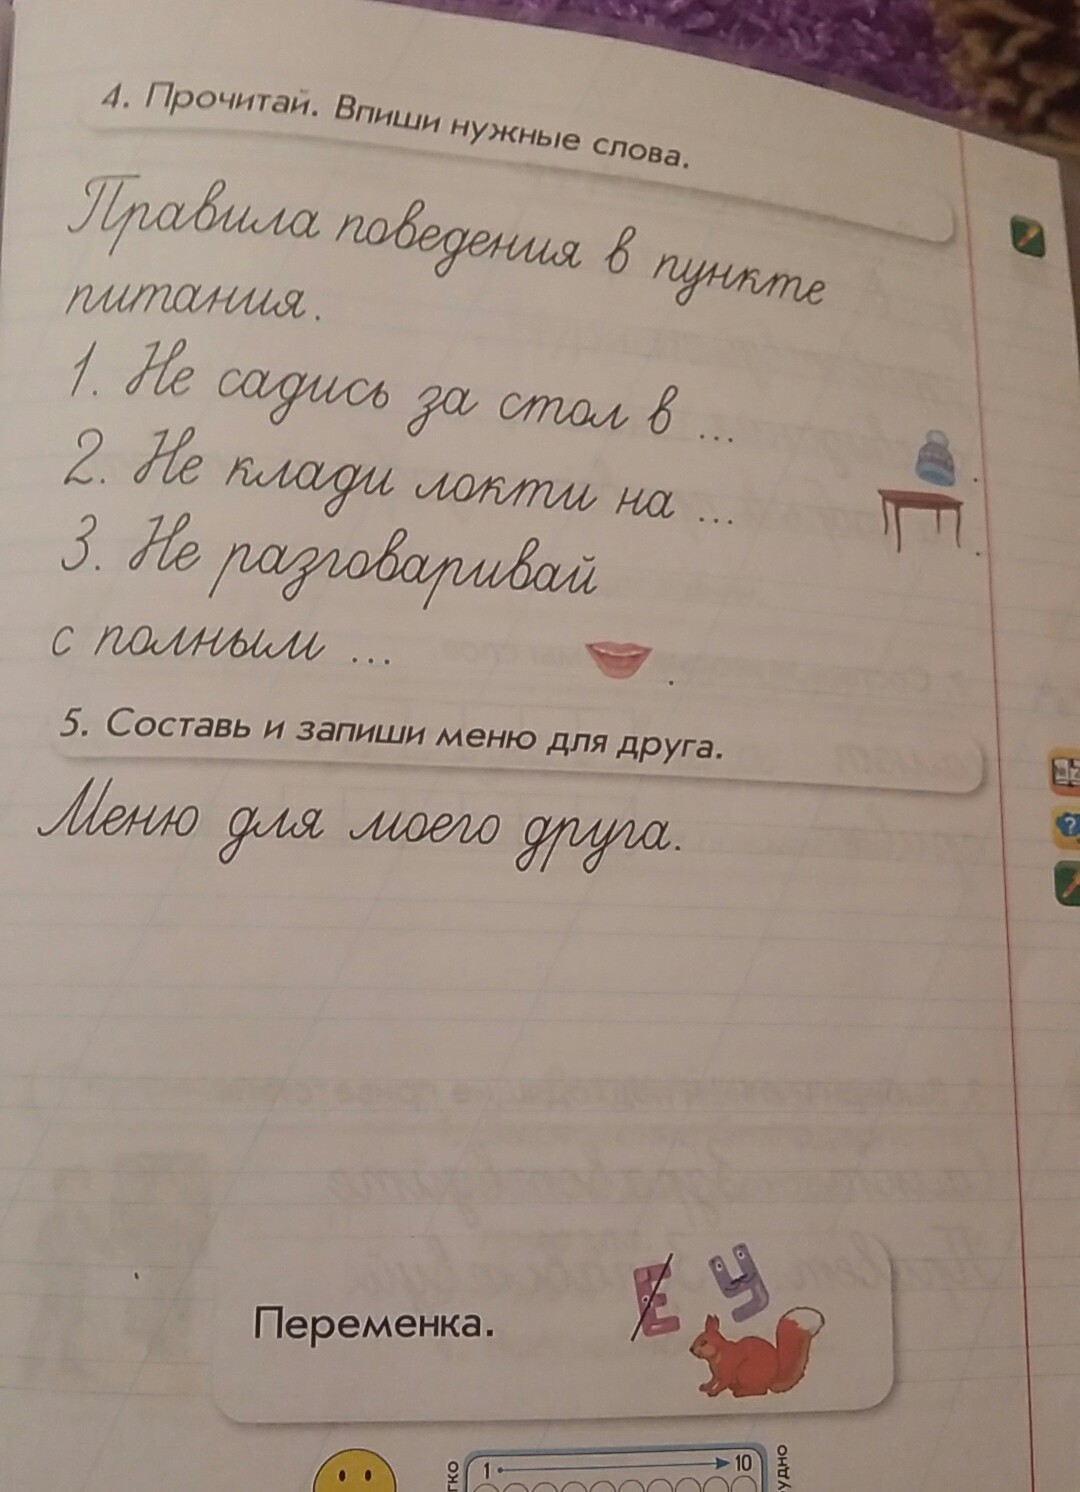 4. Прочитай. Впиши нужные слова.
Правила поведения в пункте
питания.
1. Не садись за стол в ... .
2. Не клади локти на ... .
3. Не разговаривай
с полным ... .
5. Составь и запиши меню для друга.
Меню для моего друга.
Е У
Переменка.
1 10